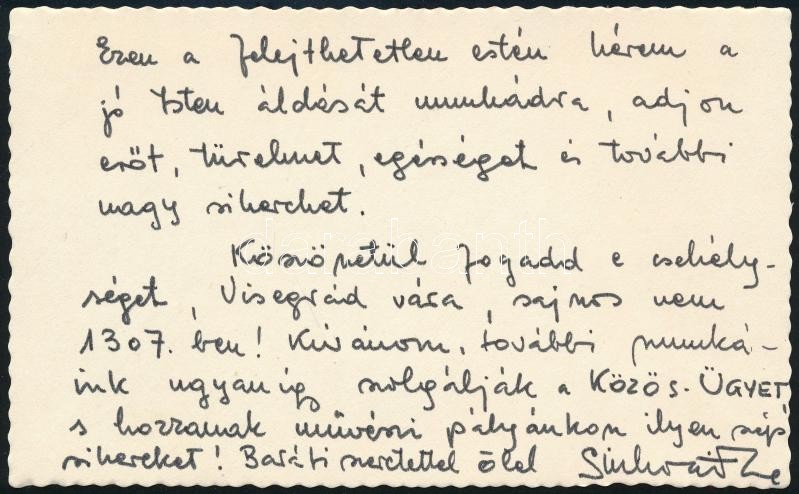 Ezen a felejthetetlen estén kérem a
jó Isten áldását munkádra, adjon
erőt, türelmet, egészséget és további
nagy sikereket.
Köszönetül fogadd e csekély-
séget, Visegrád vára, sajnos nem
1307.ben! Kívánom, további munká-
ink ugyanígy szolgálják a KÖZÖS-ÜGYET
s hozzanak művészi pályánkon ilyen szép
sikereket! Baráti szeretettel ölel